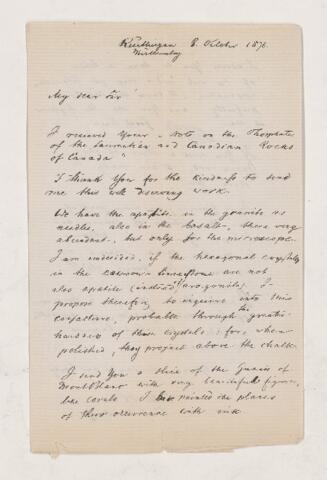 8. October 1876.
Württemberg
My dear Sir!
I received Your „Note on the Phosphate
of the Laurentian and Canadian Rocks
of Canada"
I thank You for the Kindness to send
me this well deserving work.
We have the apatite in the granite as
needles, also in the basalt, there very
abundant, but only for the microscope.
I am undecided, if the hexagonal crystals
in the limestone are not
also apatite (instead aragonite). I
propose therefore to inquire into this
conjecture, probable through the greatis
hardness of these crystals: for, when
polished, they project above the chalk.
I send You a slice of the Gneiss of
Montblanc with very beautiful figures
like corals. I painted the places
of their occurrence with ink